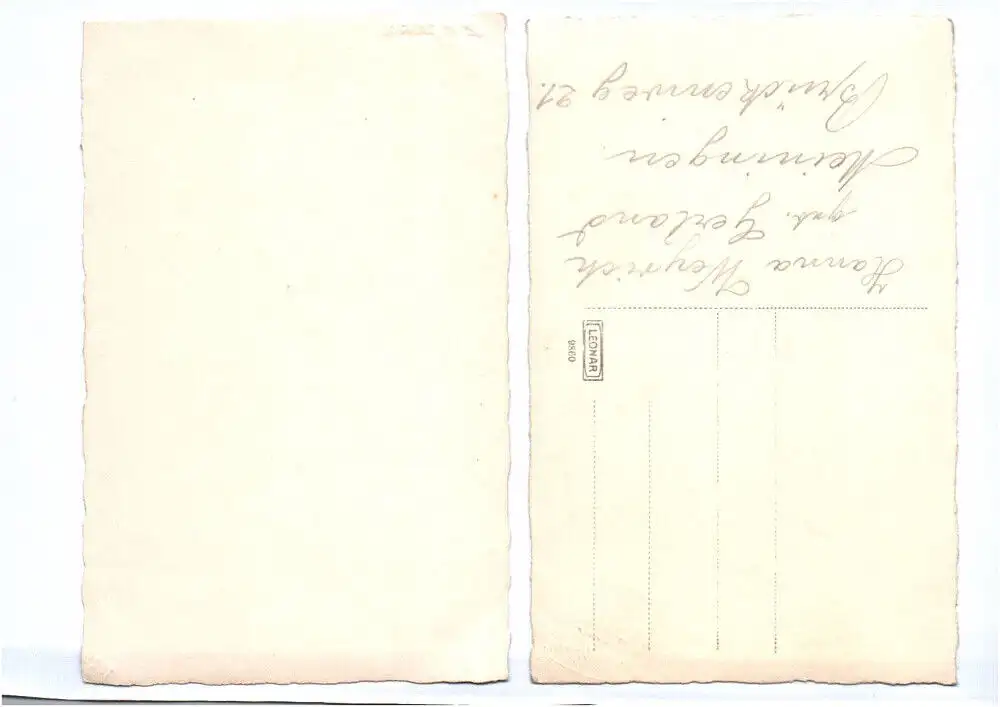 Hanna Weyrich
geb. Gerland
Meiningen.
Brückenweg 21.
LEONAR
9860